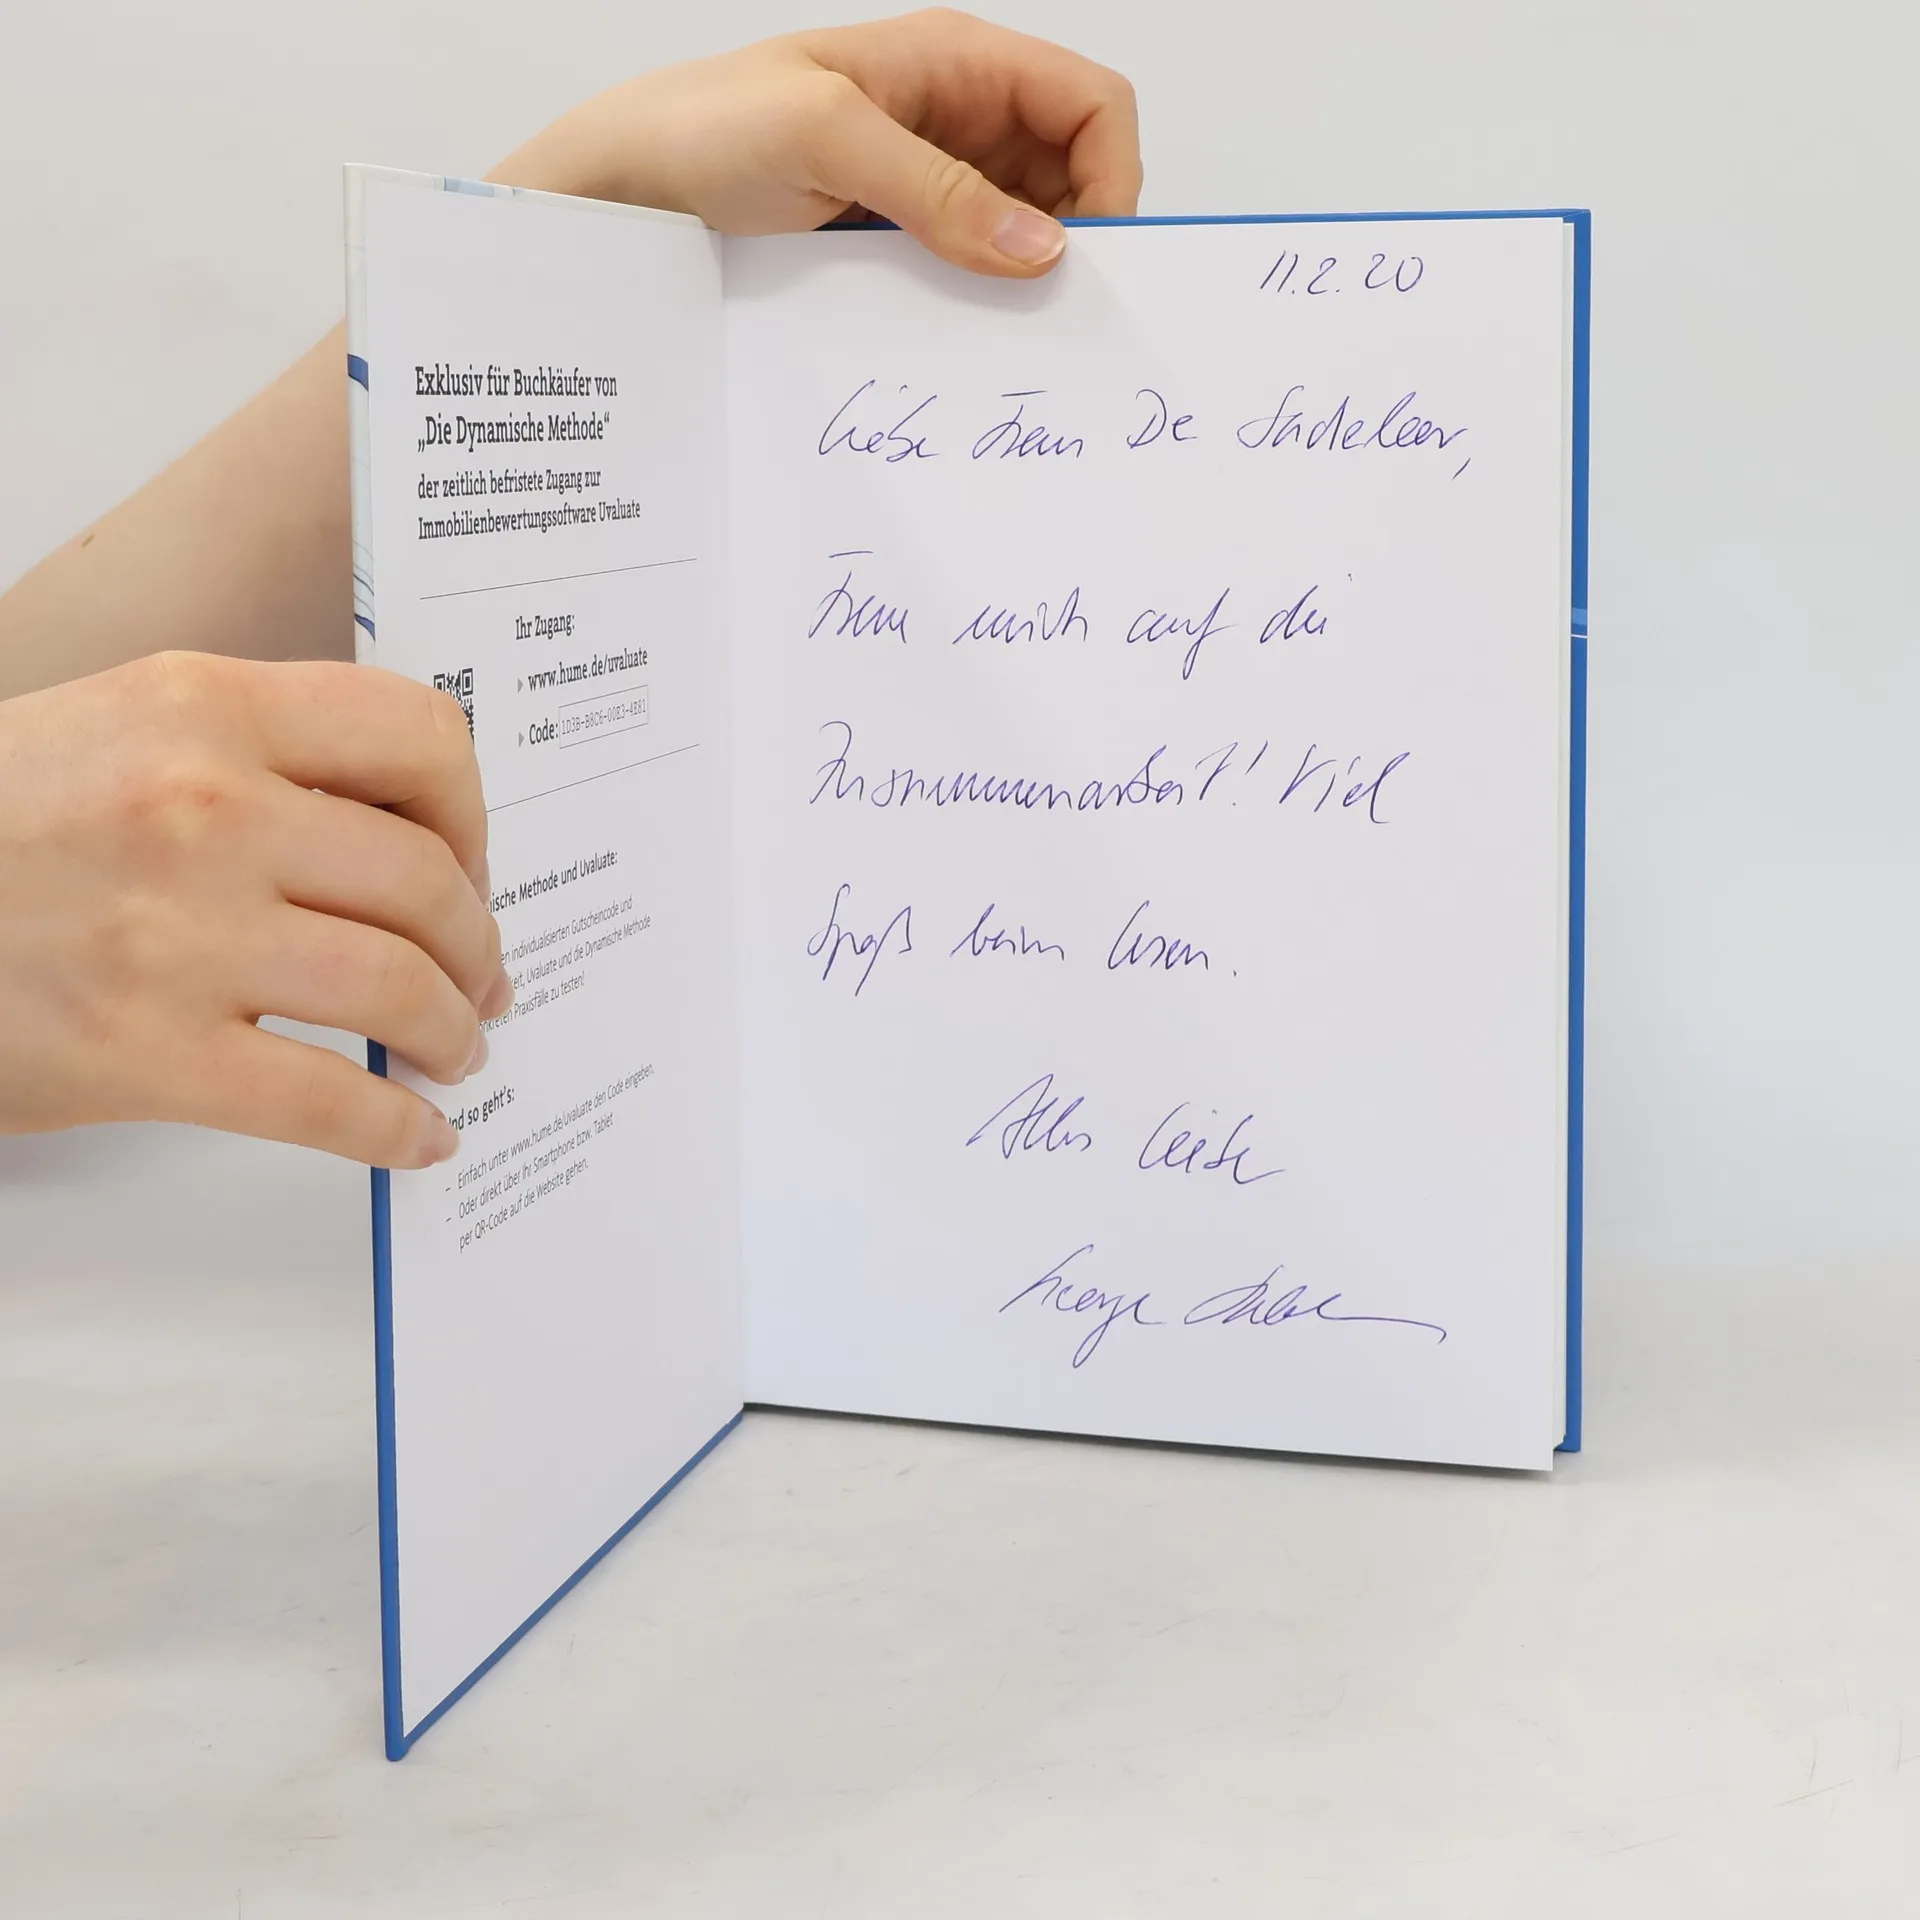 Exklusiv für Buchkäufer von
„Die Dynamische Methode“
der zeitlich befristete Zugang zur
Immobilienbewertungssoftware Uvaluate
Ihr Zugang:
www.hume.de/uvaluate
Code: 1D3B-B8C6-00E3-4E81
ische Methode und Uvaluate:
en individualisierten Gutscheincode und
keit, Uvaluate und die Dynamische Methode
onkreten Praxisfälle zu testen!
nd so geht's:
– Einfach unter www.hume.de/uvaluate den Code eingeben.
– Oder direkt über Ihr Smartphone bzw. Tablet
per QR-Code auf die Website gehen.
11.2.20
Liebe Frau De Sadeleer,
Freue mich auf die
Zusammenarbeit! Viel
Spaß beim Lesen.
Alles Liebe
George